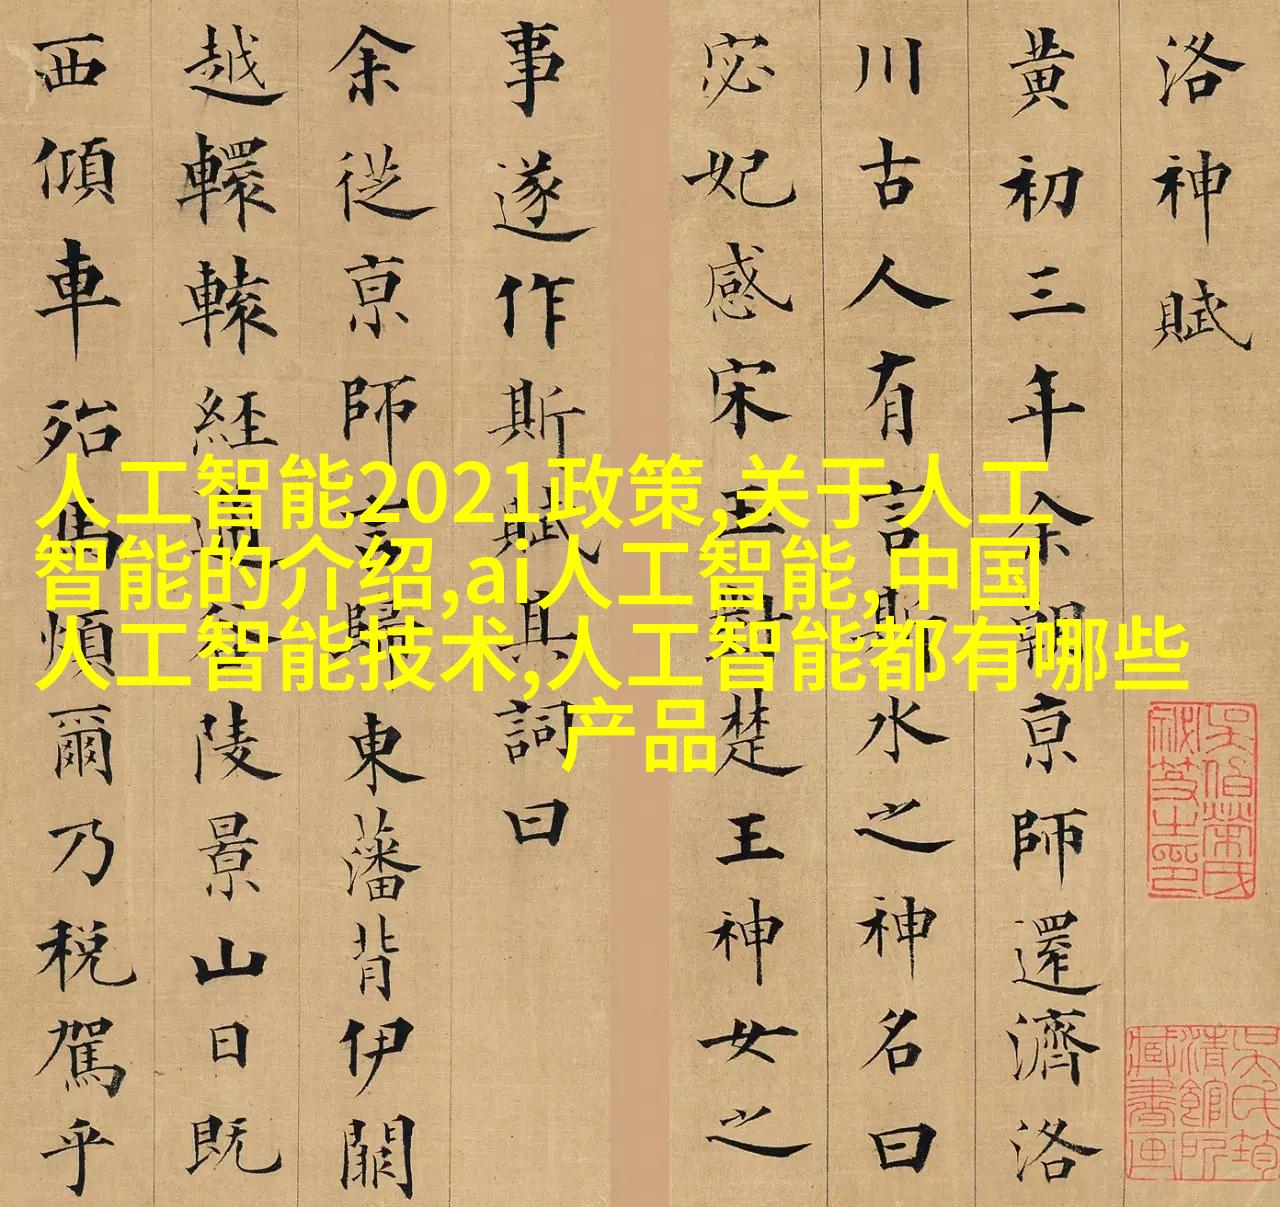 洛神賦
黄初三年余朝京師還濟洛
川古人有言斯水之神名曰
宓妃感宋王對楚王神女之
事遂作斯賦其詞曰
余從京師言歸東藩背伊闕
越轘轅經通谷陵景山日既
西傾車殆馬煩爾乃税駕乎
人工智能2021政策,关于人工
智能的介绍,ai人工智能,中国
人工智能技术,人工智能都有哪些
产品
吳氏筠
清館所
藏書画